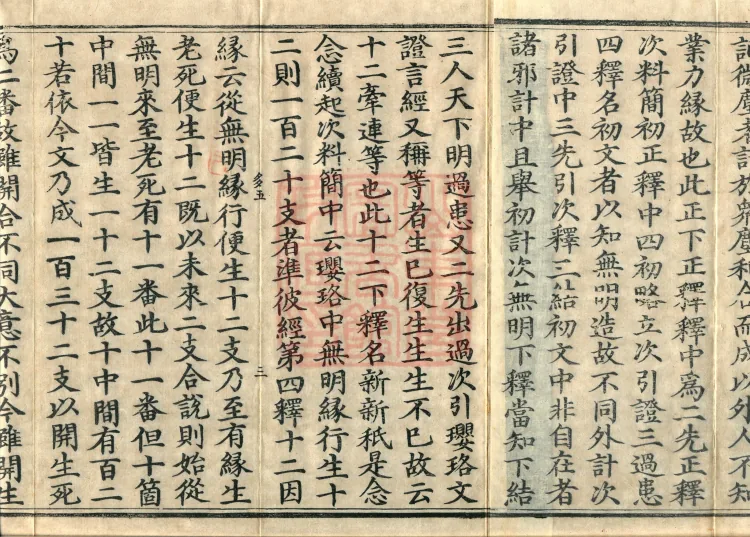 記微塵者計於無塵和合而成以外人不知
業力緣故也此正下正釋釋中爲二先正釋
次料簡初正釋中四初略立次引證三過患
四釋名初文者以知無明造故不同外計次
引證中三先引次釋三結初文中非自在者
諸邪計中且舉初計次無明下釋當知下結
三人天下明過患又二先出過次引瓔珞文
證言經又稱等者生已復生生生不已故云
十二牽連等也此十二下釋名新新秖是念
念續起次料簡中云瓔珞中無明緣行生十
二則一百二十支者準彼經第四釋十二因
多五
三
緣云從無明緣行便生十二支乃至有緣生
老死便生十二既以未來二支合說則始從
無明來至老死有十一番此十一番但十箇
中間一一皆生一十二支故十中間有百二
十若依今文乃成一百三十二支以開生死
爲二番故雖開合不同大意不別今雖開生